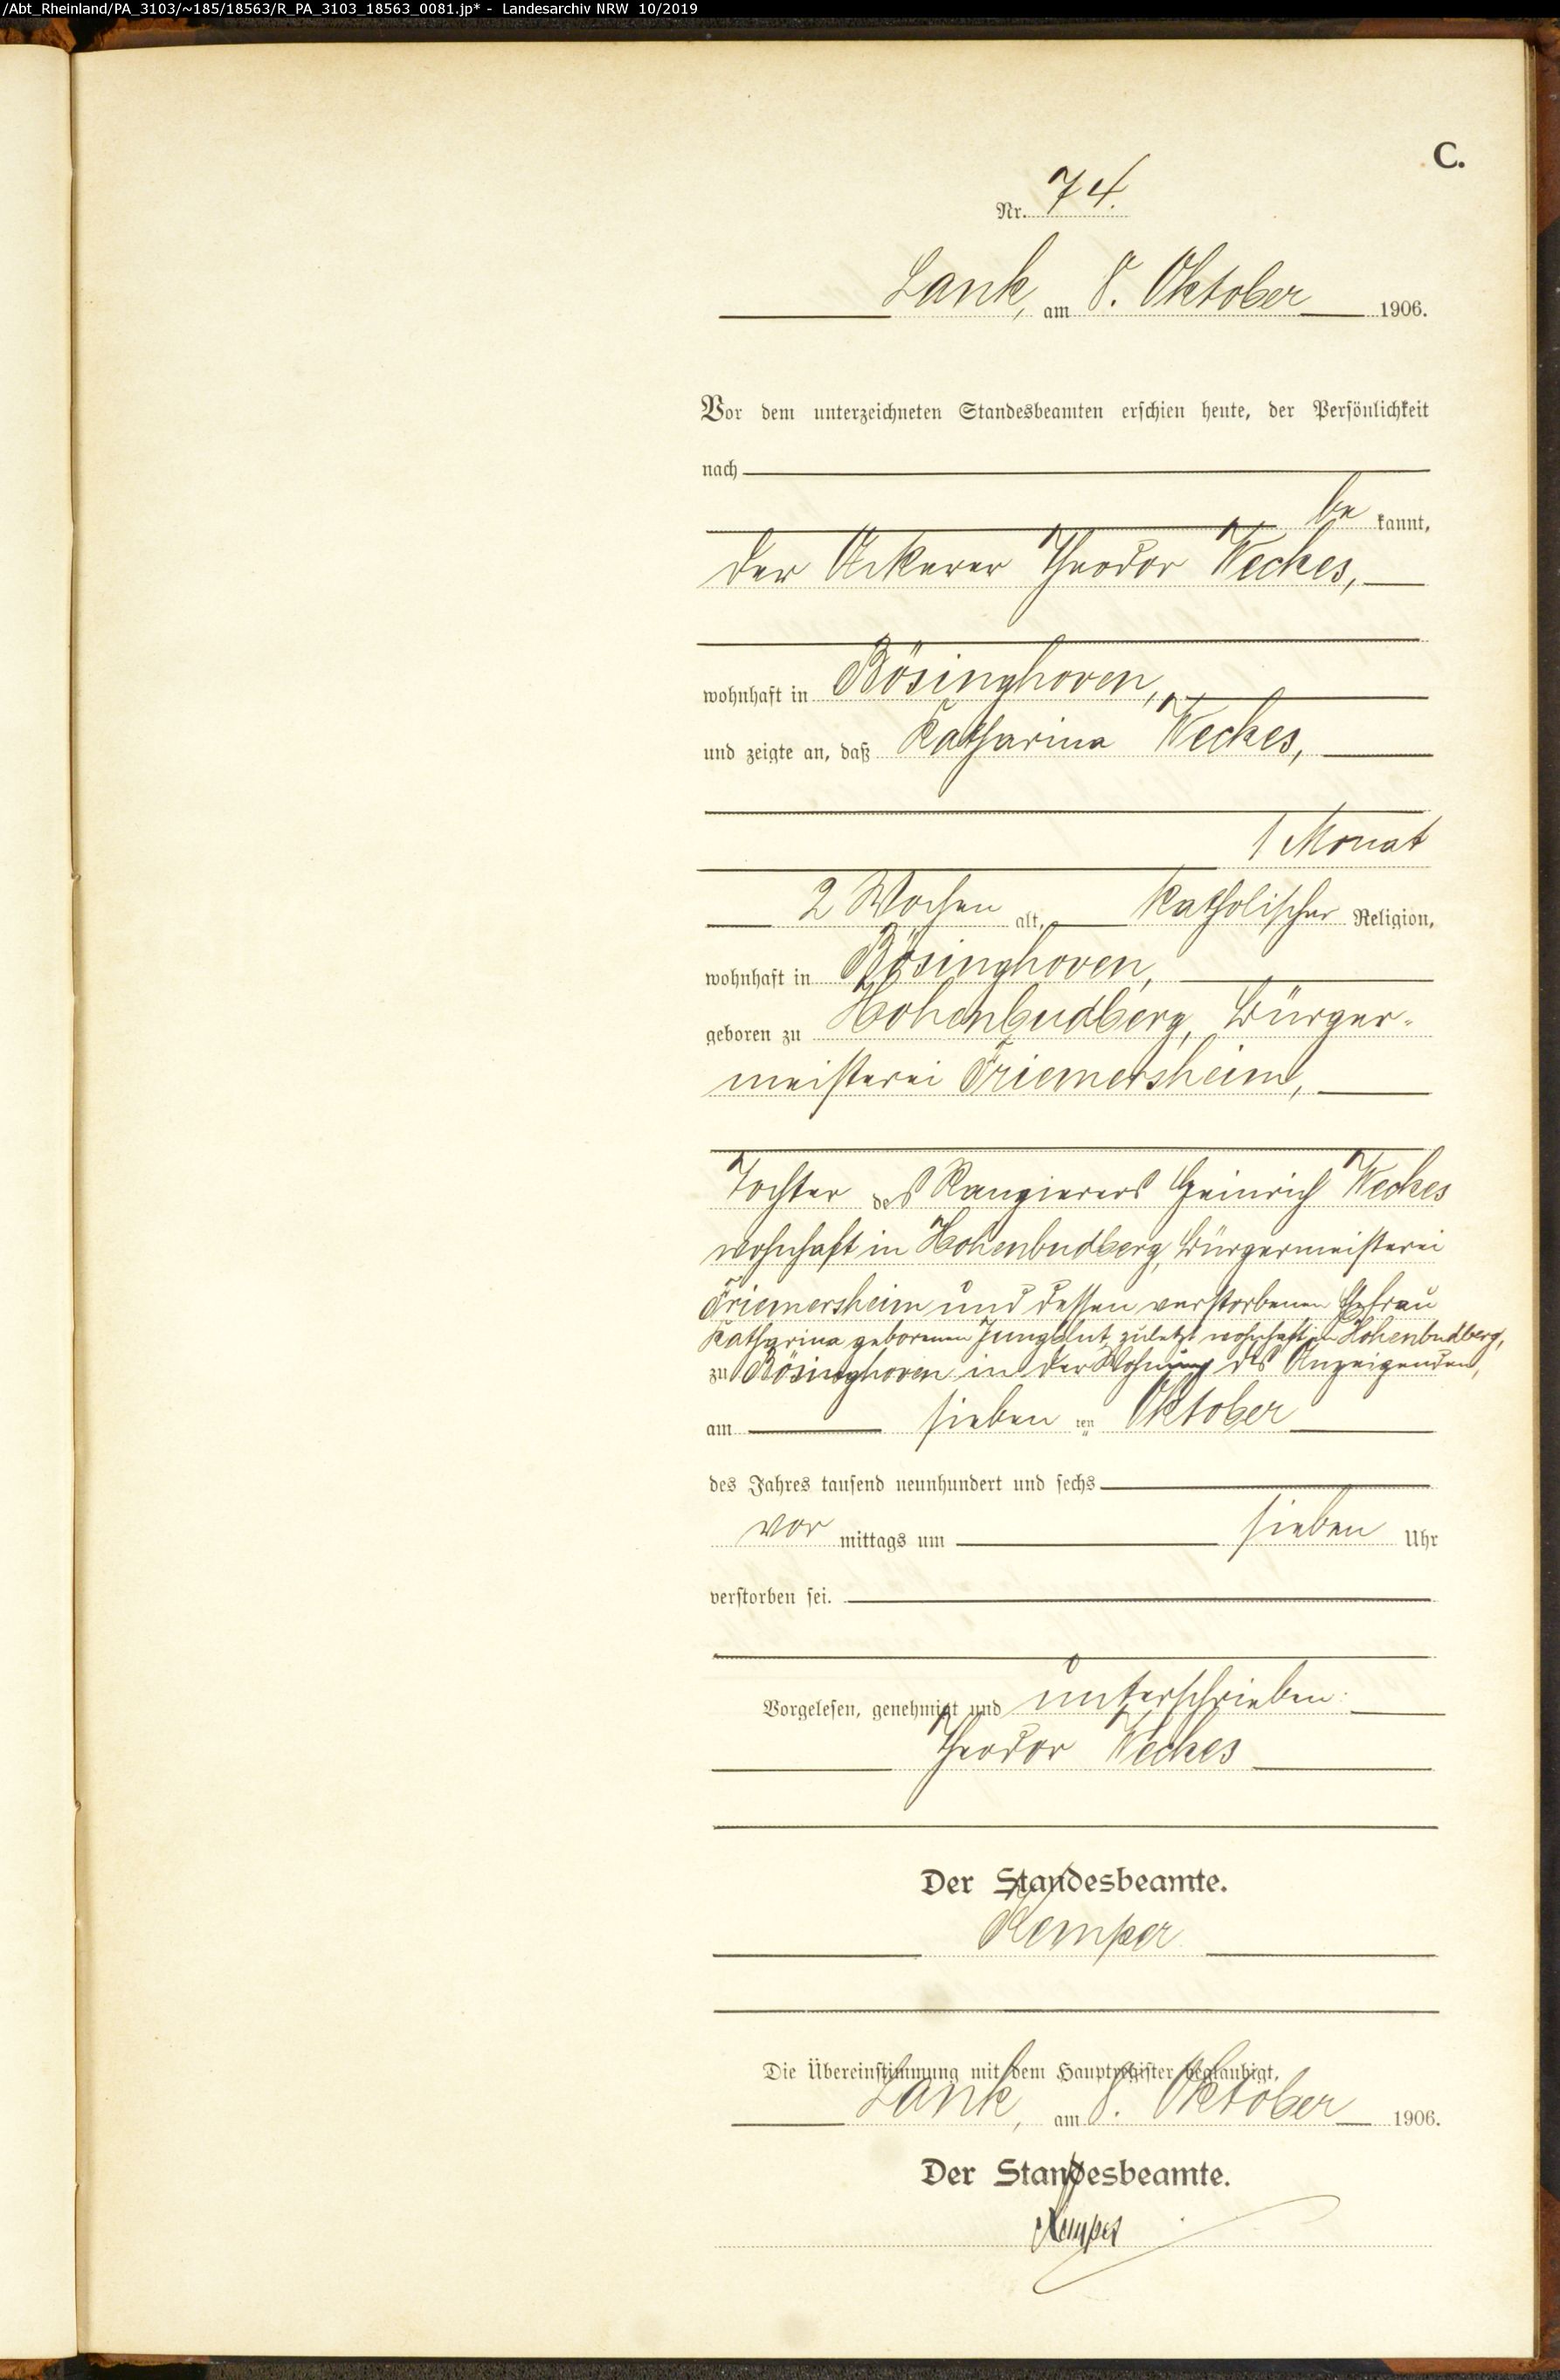 /Abt_Rheinland/PA_3103/~185/18563/R_PA_3103_18563_0081.jp* - Landesarchiv NRW 10/2019
C.
Nr. 74.
Lank, am 8. Oktober 1906.
Vor dem unterzeichneten Standesbeamten erschien heute, der Persönlichkeit
nach
be kannt,
der Ackerer Theodor Weckes,
wohnhaft in Bösinghoven,
und zeigte an, daß Katharina Weckes,
1 Monat
2 Wochen alt, katholischer Religion,
wohnhaft in Bösinghoven,
geboren zu Hohenbudberg, Bürger-
meisterei Friemersheim,
Tochter des Rangierers Heinrich Weckes
wohnhaft in Hohenbudberg, Bürgermeisterei
Friemersheim und dessen verstorbenen Ehefrau
Katharina geborenen Jungblut, zuletzt wohnhaft in Hohenbudberg,
zu Bösinghoven in der Wohnung des Anzeigenden,
am sieben ten Oktober
des Jahres tausend neunhundert und sechs
vor mittags um sieben Uhr
verstorben sei.
Vorgelesen, genehmigt und unterschrieben:
Theodor Weckes
Der Standesbeamte.
Kemper
Die Übereinstimmung mit dem Hauptregister beglaubigt.
Lank, am 8. Oktober 1906.
Der Standesbeamte.
Kemper